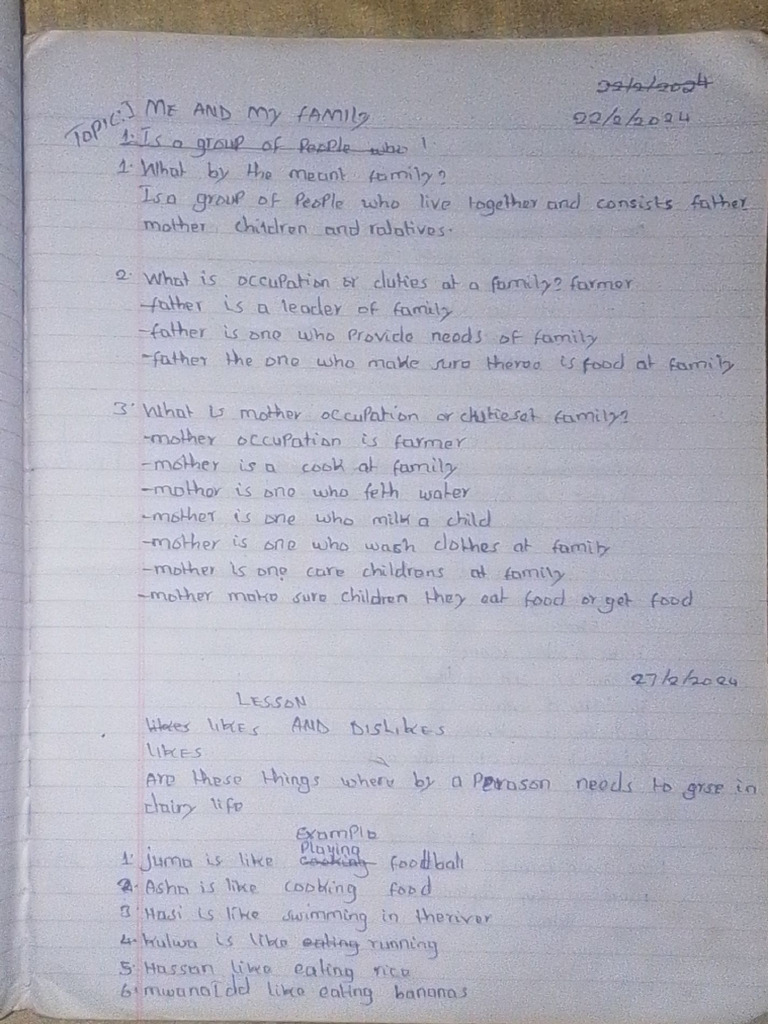 22/2/2024
22/2/2024
TOPIC:1 ME AND MY FAMILY
1. Is a group of People who
1. What by the meant family?
Is a group of People who live together and consists father
mother, children and ralatives.
2. What is occupation or duties at a family? farmer
-father is a leader of family
-father is one who Provide needs of family
-father the one who make sure theree is food at family
3. What is mother occupation or dutieset family?
-mother occupation is farmer
-mother is a cook at family
-mother is one who feth water
-mother is one who milk a child
-mother is one who wash clothes at family
-mother is one care childrens at family
-mother make sure children they eat food or get food
27/2/2024
LESSON
likes likes AND DISLIKES
LIKES
Are these things where by a Person needs to in
dairy life
Example
1. Juma is like cooking Playing football
2. Asha is like cooking food
3. Hasi is like swimming in theriver
4. kulwa is like eating running
5. Hassan like eating rice
6. mwanaIdd like eating bananas